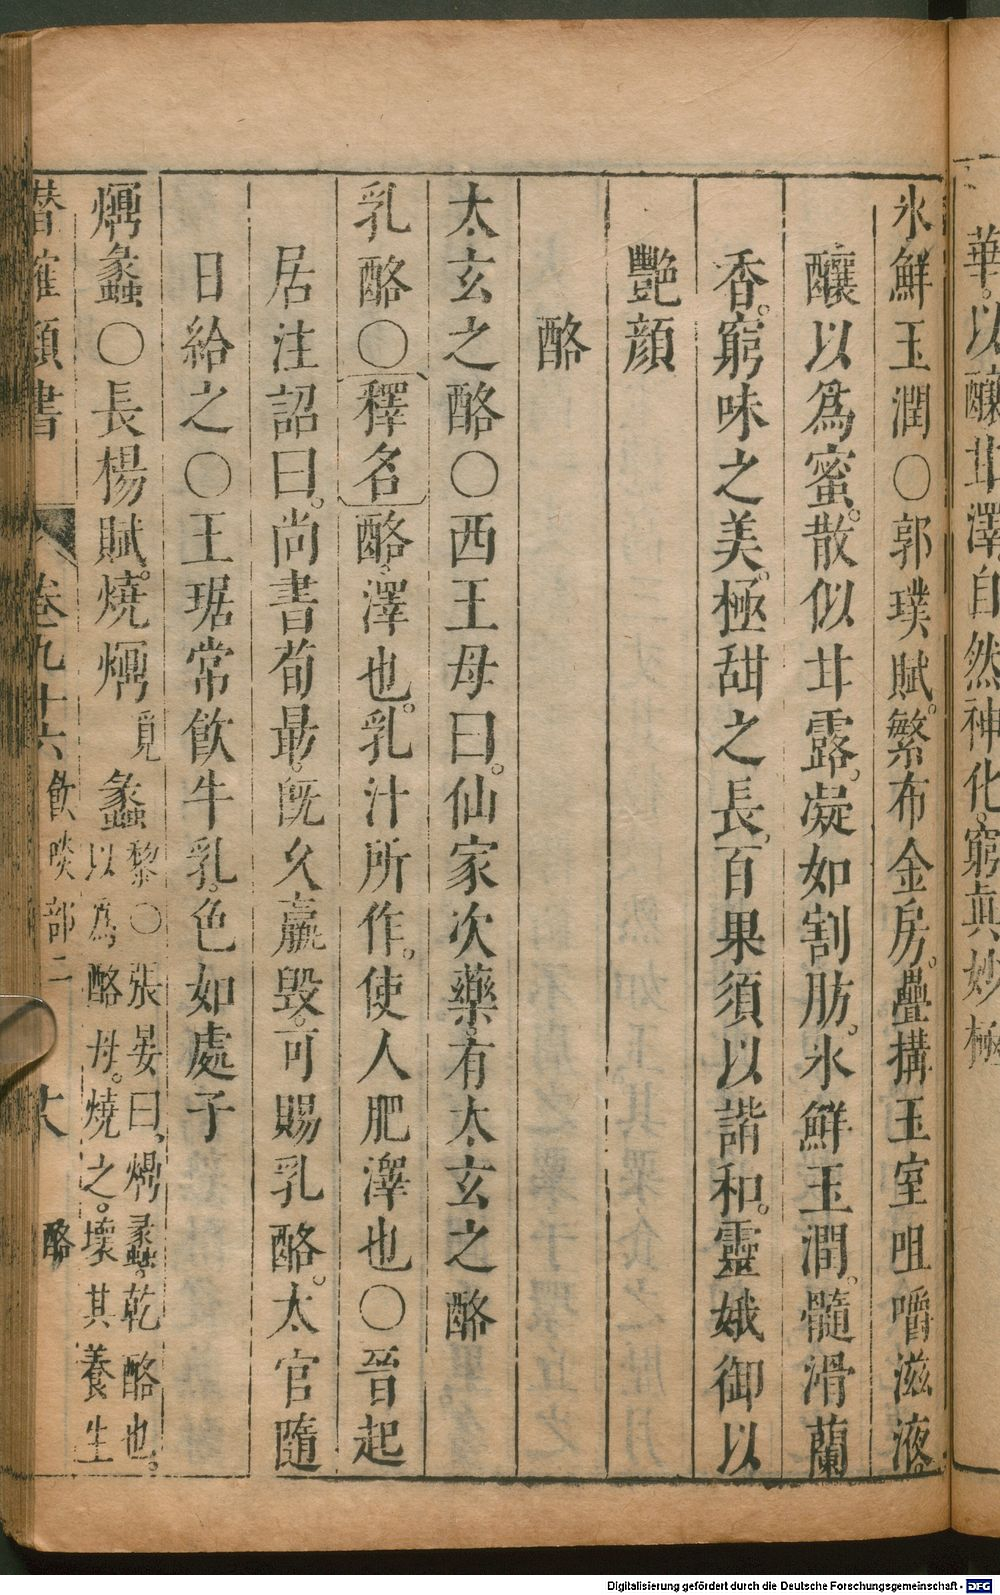 華。以釀甘澤自然神化。窮眞妙極
氷鮮玉潤〇郭璞賦。繁布金房。疊搆玉室咀嚼滋液。
釀以爲蜜。散似甘露。凝如割肪。氷鮮玉潤。髓滑蘭
香。窮味之美。極甜之長。百果須以諧和。靈娥御以
艷顔
酪
太玄之酪〇西王母曰。仙家次藥。有太玄之酪
乳酪〇釋名酪。澤也。乳汁所作。使人肥澤也〇晉起
居注詔曰。尚書荀最。旣久羸毀。可賜乳酪。太官隨
日給之〇王琚常飮牛乳。色如處子
煟蠡〇長楊賦。燒煟覓蠡黎〇張晏曰、煟蠡。乾酪也。
以爲酪母。燒之。壞其養生
潛確類書 卷九十六 飮啖部二 酪
Digitalisierung gefördert durch die Deutsche Forschungsgemeinschaft - DFG